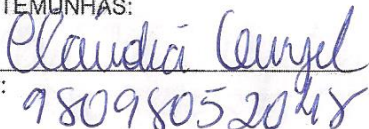 TEMUNHAS:
Claudia Gurgel
: 98098052048